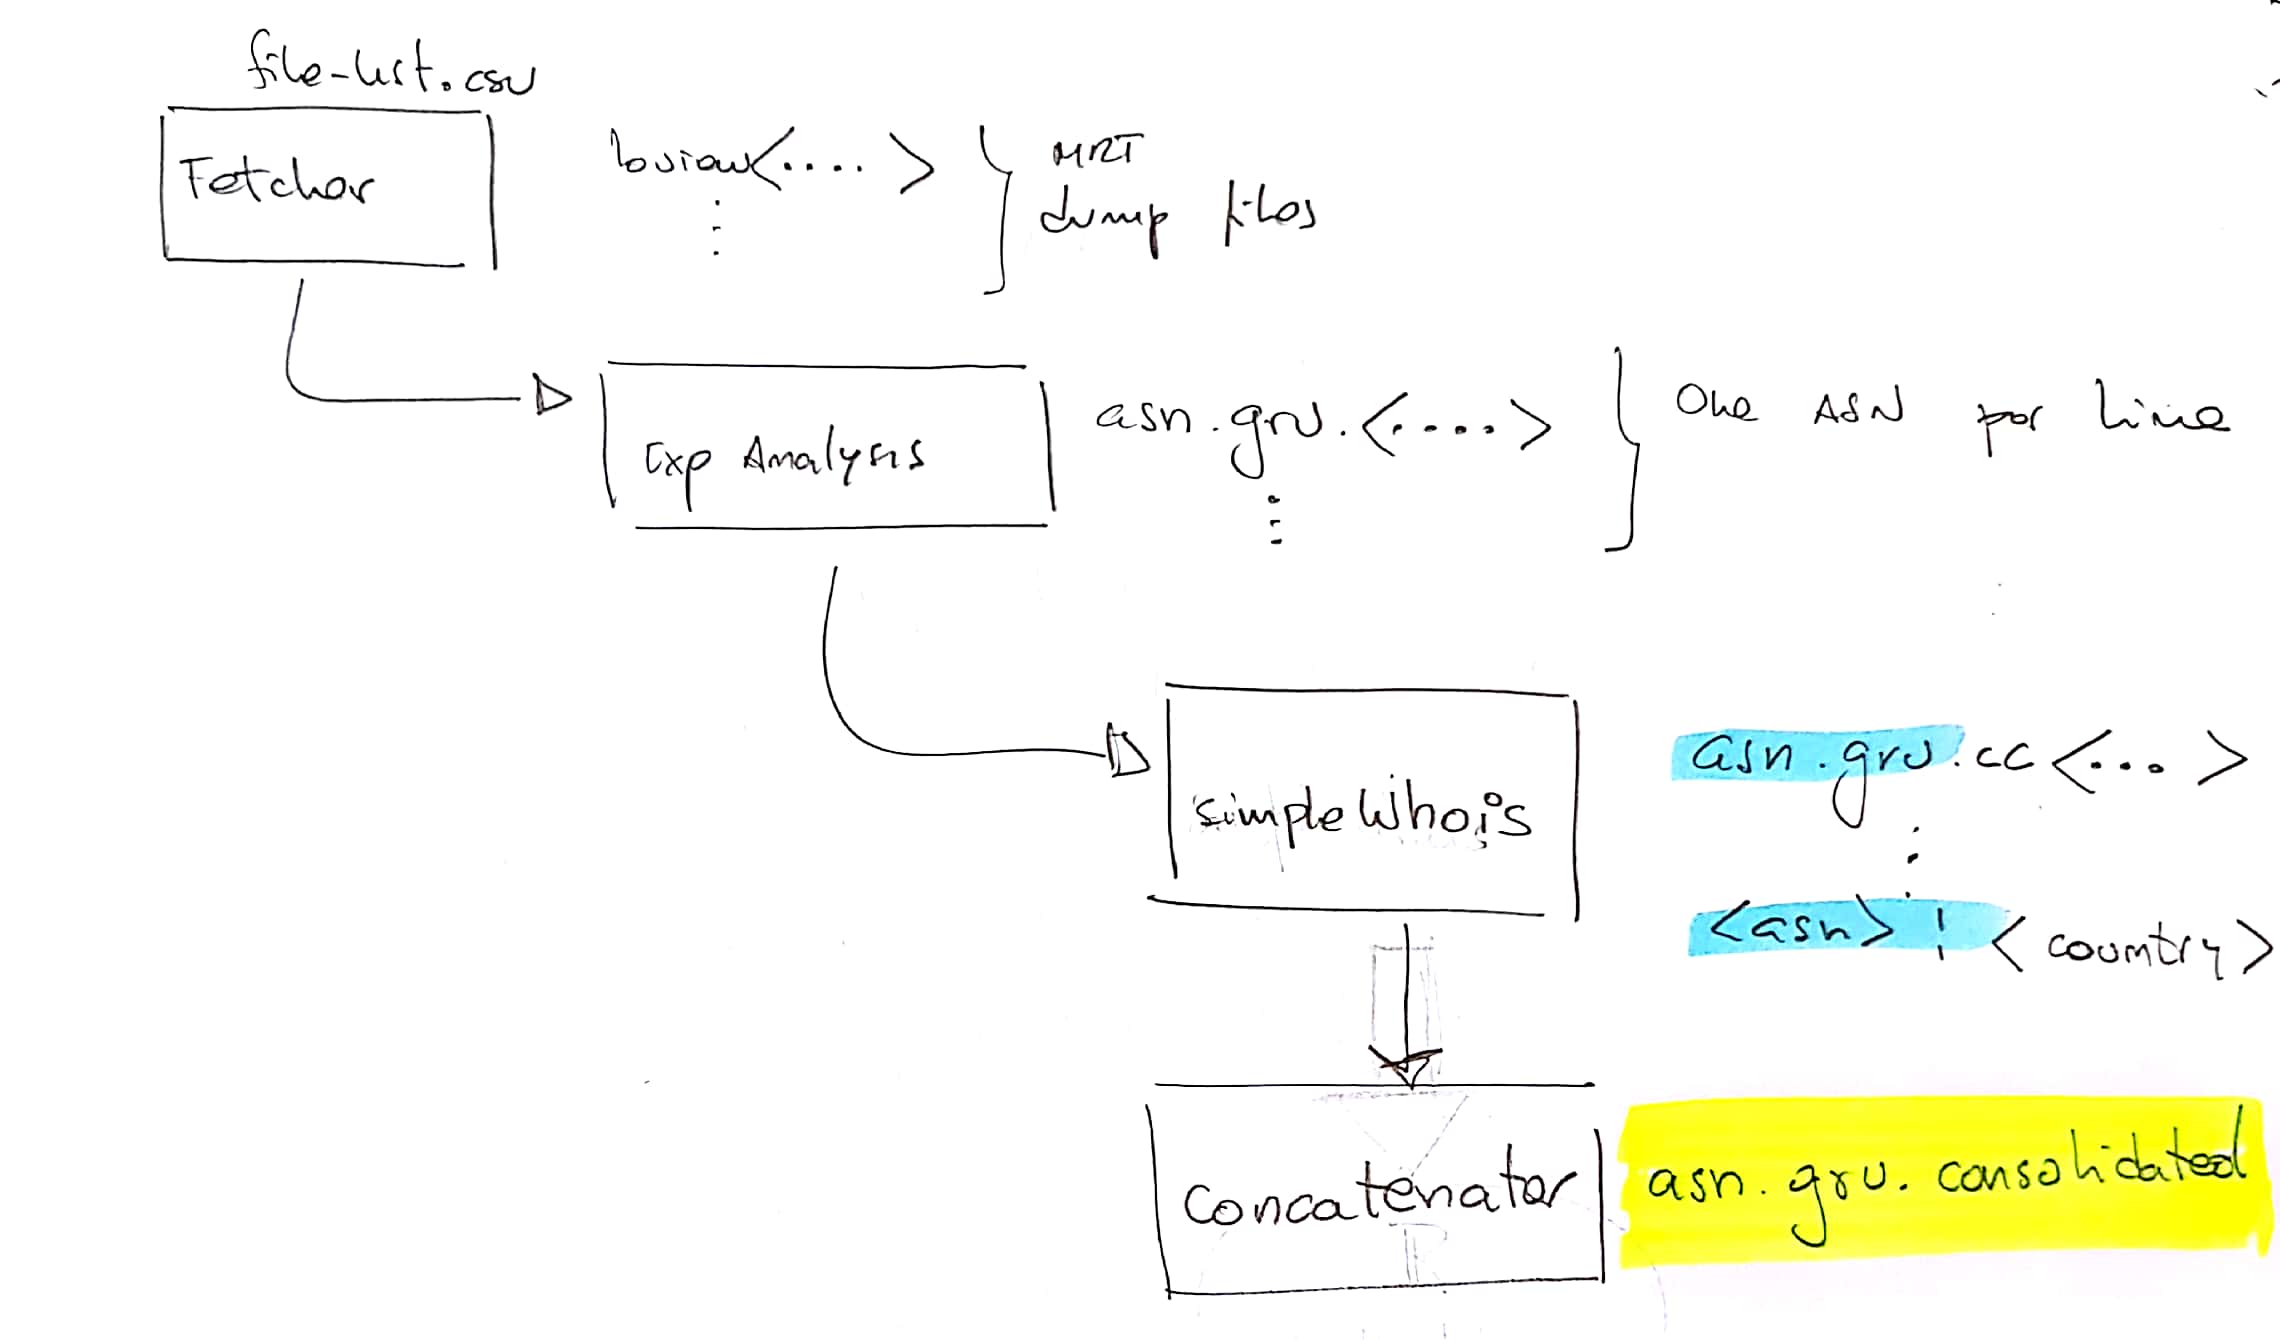 file-list.csv
Fetcher
bview<....>
MRT
dump files
Exp Analysis
asn.gru.<....>
One ASN per line
SimpleWhois
asn.gru.cc<...>
<asn>|<country>
Concatenator
asn.gru.consolidated